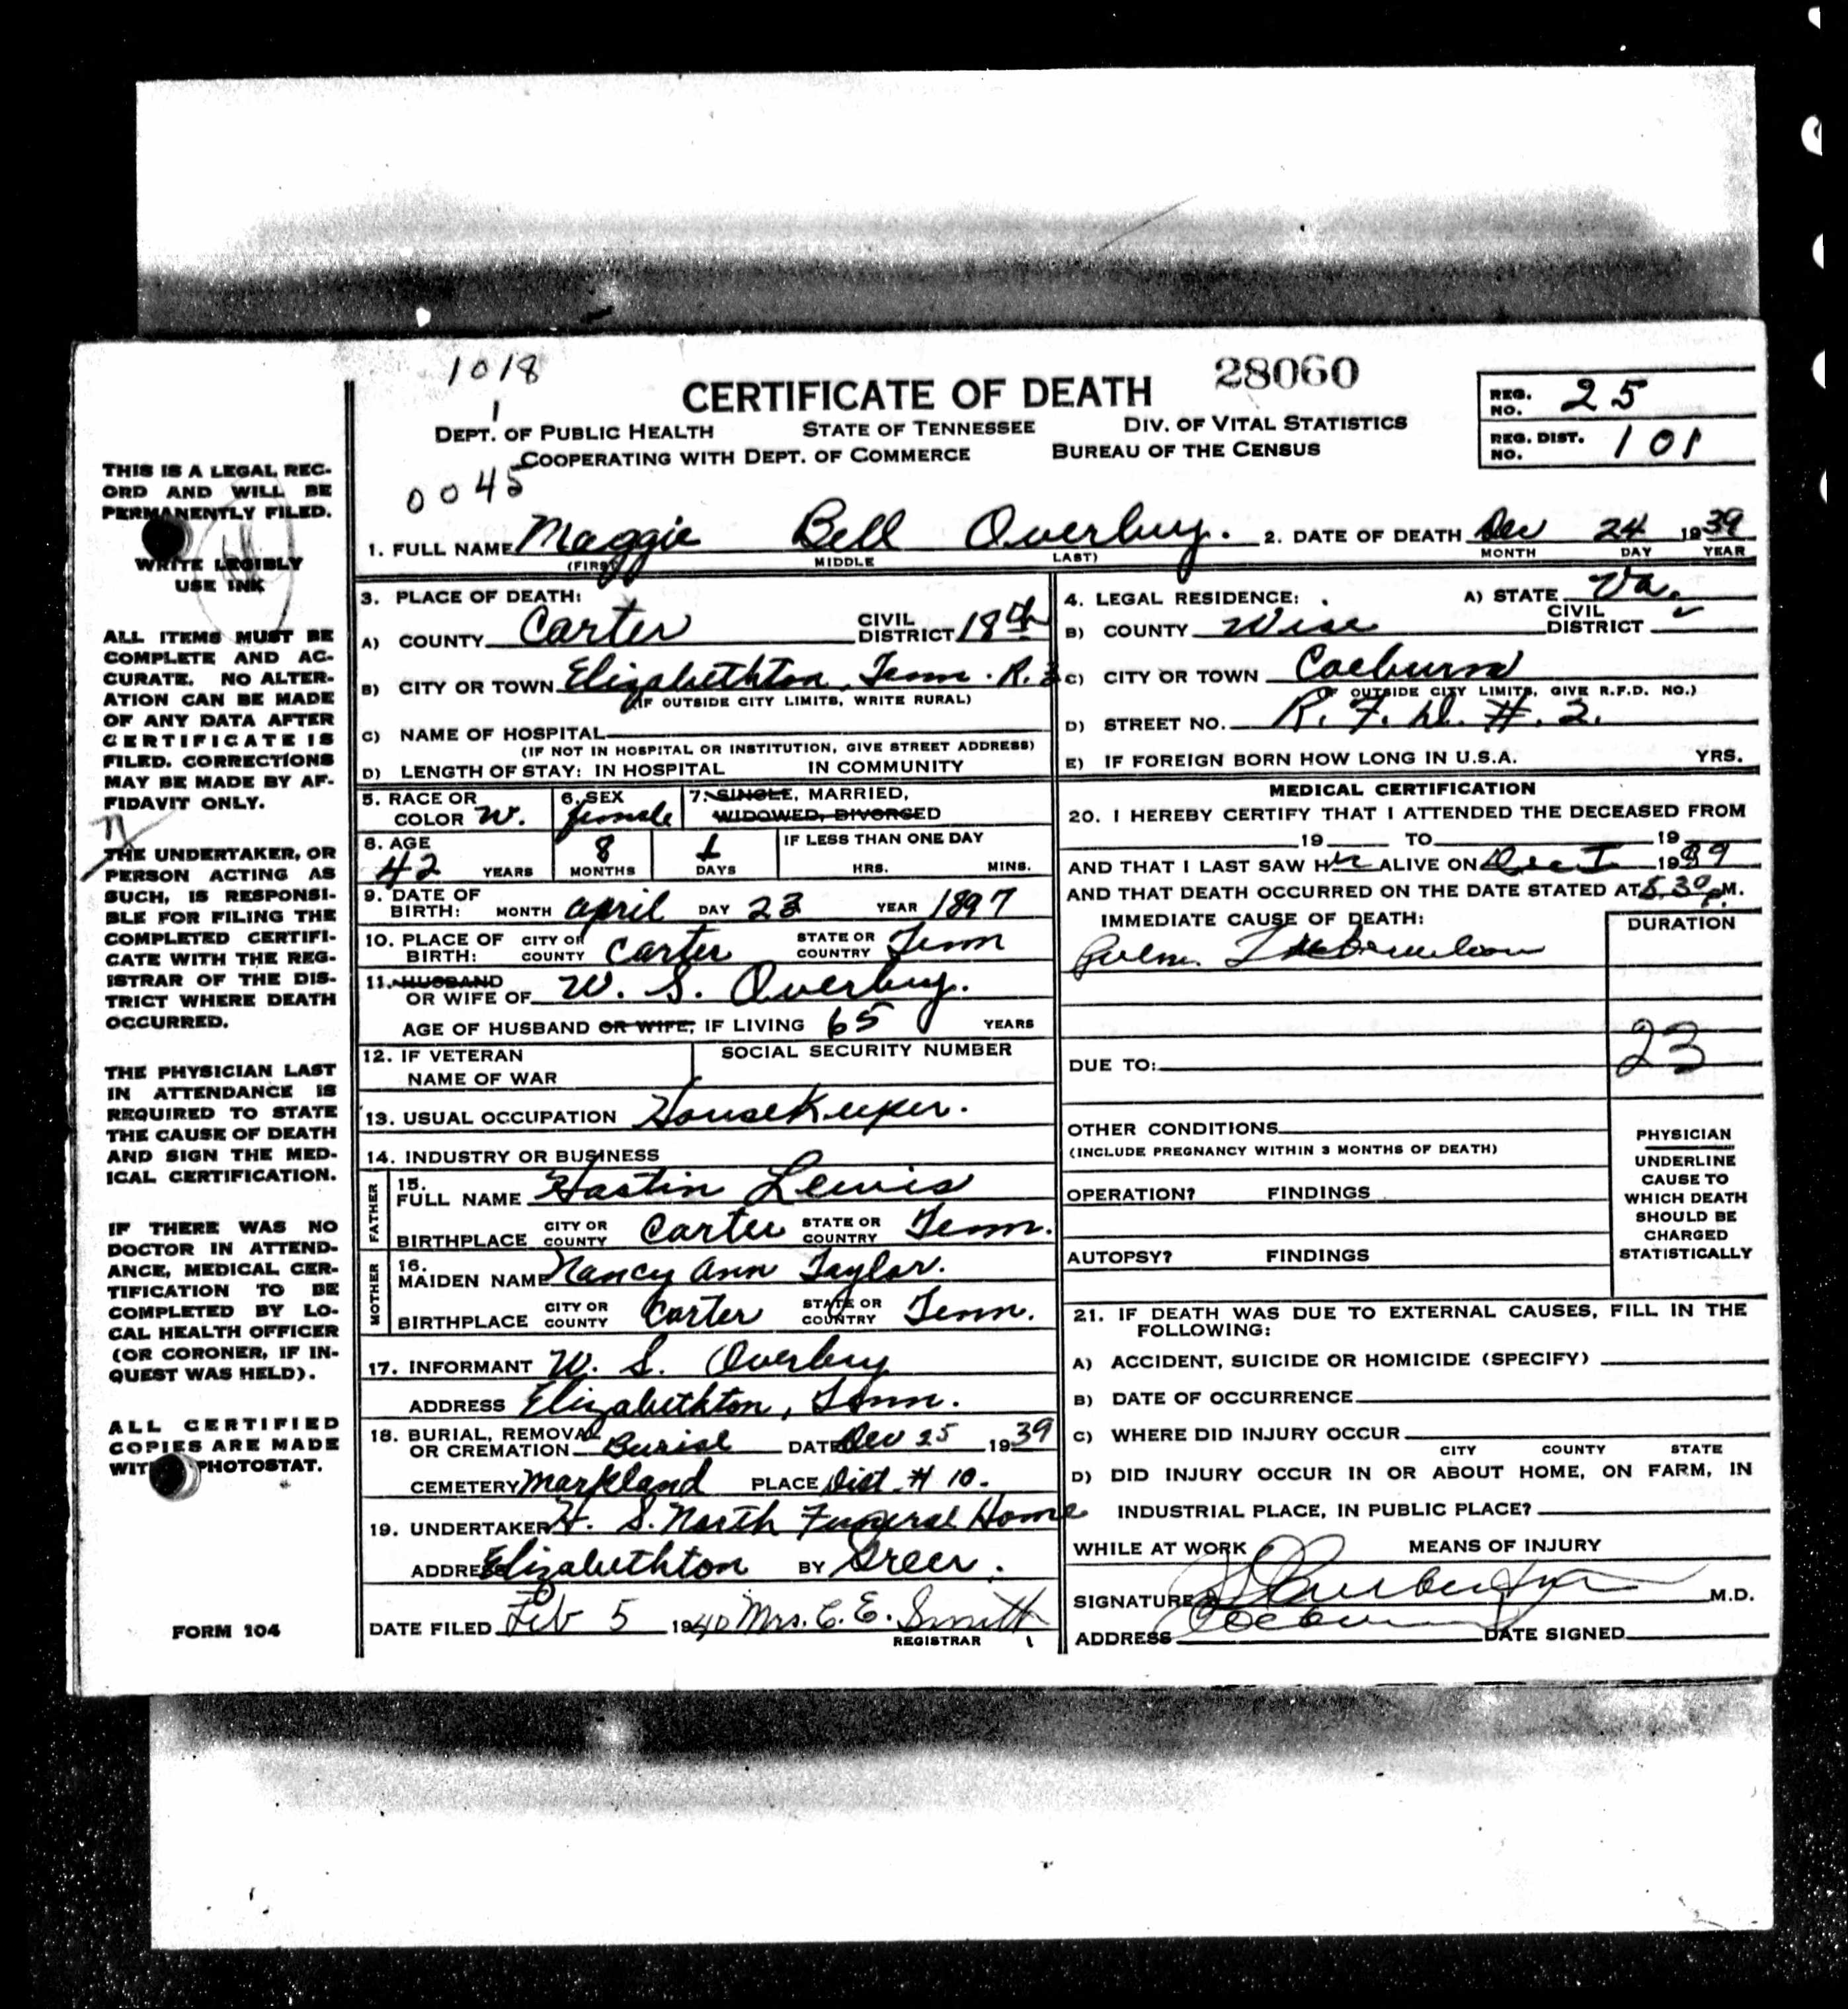 1018 28060
CERTIFICATE OF DEATH
REG. NO. 25
1
DEPT. OF PUBLIC HEALTH STATE OF TENNESSEE DIV. OF VITAL STATISTICS
COOPERATING WITH DEPT. OF COMMERCE BUREAU OF THE CENSUS
REG. DIST. NO. 101
0045
THIS IS A LEGAL REC-
ORD AND WILL BE
PERMANENTLY FILED.
WRITE LEGIBLY
USE INK
ALL ITEMS MUST BE
COMPLETE AND AC-
CURATE. NO ALTER-
ATION CAN BE MADE
OF ANY DATA AFTER
CERTIFICATE IS
FILED. CORRECTIONS
MAY BE MADE BY AF-
FIDAVIT ONLY.
THE UNDERTAKER, OR
PERSON ACTING AS
SUCH, IS RESPONSI-
BLE FOR FILING THE
COMPLETED CERTIFI-
CATE WITH THE REG-
ISTRAR OF THE DIS-
TRICT WHERE DEATH
OCCURRED.
THE PHYSICIAN LAST
IN ATTENDANCE IS
REQUIRED TO STATE
THE CAUSE OF DEATH
AND SIGN THE MED-
ICAL CERTIFICATION.
IF THERE WAS NO
DOCTOR IN ATTEND-
ANCE, MEDICAL CER-
TIFICATION TO BE
COMPLETED BY LO-
CAL HEALTH OFFICER
(OR CORONER, IF IN-
QUEST WAS HELD).
ALL CERTIFIED
COPIES ARE MADE
WITH PHOTOSTAT.
FORM 104
1. FULL NAME Maggie Bell Overbey. 2. DATE OF DEATH Dec 24 1939
(FIRST) MIDDLE LAST) MONTH DAY YEAR
3. PLACE OF DEATH:
A) COUNTY Carter CIVIL DISTRICT 18th
B) CITY OR TOWN Elizabethton, Tenn. R. 3
(IF OUTSIDE CITY LIMITS, WRITE RURAL)
C) NAME OF HOSPITAL
(IF NOT IN HOSPITAL OR INSTITUTION, GIVE STREET ADDRESS)
D) LENGTH OF STAY: IN HOSPITAL IN COMMUNITY
5. RACE OR COLOR W. 6. SEX female 7. SINGLE, MARRIED,
WIDOWED, DIVORCED
8. AGE 42 YEARS 8 MONTHS 1 DAYS IF LESS THAN ONE DAY
HRS. MINS.
9. DATE OF BIRTH: MONTH april DAY 23 YEAR 1897
10. PLACE OF BIRTH: CITY OR COUNTY Carter STATE OR COUNTRY Tenn
11. HUSBAND
OR WIFE OF W. S. Overbey.
AGE OF HUSBAND OR WIFE, IF LIVING 65 YEARS
12. IF VETERAN NAME OF WAR SOCIAL SECURITY NUMBER
13. USUAL OCCUPATION HouseKeeper.
14. INDUSTRY OR BUSINESS
FATHER
15. FULL NAME Hastin Lewis
BIRTHPLACE CITY OR COUNTY Carter STATE OR COUNTRY Tenn.
MOTHER
16. MAIDEN NAME Nancy ann Taylor.
BIRTHPLACE CITY OR COUNTY Carter STATE OR COUNTRY Tenn.
17. INFORMANT W. S. Overbey
ADDRESS Elizabethton, Tenn.
18. BURIAL, REMOVAL OR CREMATION Burial DATE Dec 25 1939
CEMETERY Markland PLACE Dist. # 10.
19. UNDERTAKER H. S. North Funeral Home
ADDRESS Elizabethton BY Greer.
DATE FILED Feb 5 1940 Mrs. C. E. Smith
REGISTRAR
4. LEGAL RESIDENCE: A) STATE Va.
B) COUNTY Wise CIVIL DISTRICT
C) CITY OR TOWN Coeburn
(IF OUTSIDE CITY LIMITS, GIVE R.F.D. NO.)
D) STREET NO. R. F. D. #. 2.
E) IF FOREIGN BORN HOW LONG IN U.S.A. YRS.
MEDICAL CERTIFICATION
20. I HEREBY CERTIFY THAT I ATTENDED THE DECEASED FROM
19 TO 19
AND THAT I LAST SAW Her ALIVE ON Dec 1939
AND THAT DEATH OCCURRED ON THE DATE STATED AT 5.30 P.M.
IMMEDIATE CAUSE OF DEATH: DURATION
Pulm. Tuberculosis
DUE TO: 23
OTHER CONDITIONS
(INCLUDE PREGNANCY WITHIN 3 MONTHS OF DEATH)
OPERATION? FINDINGS
AUTOPSY? FINDINGS
PHYSICIAN
UNDERLINE
CAUSE TO
WHICH DEATH
SHOULD BE
CHARGED
STATISTICALLY
21. IF DEATH WAS DUE TO EXTERNAL CAUSES, FILL IN THE
FOLLOWING:
A) ACCIDENT, SUICIDE OR HOMICIDE (SPECIFY)
B) DATE OF OCCURRENCE
C) WHERE DID INJURY OCCUR
CITY COUNTY STATE
D) DID INJURY OCCUR IN OR ABOUT HOME, ON FARM, IN
INDUSTRIAL PLACE, IN PUBLIC PLACE?
WHILE AT WORK MEANS OF INJURY
SIGNATURE M.D.
ADDRESS DATE SIGNED